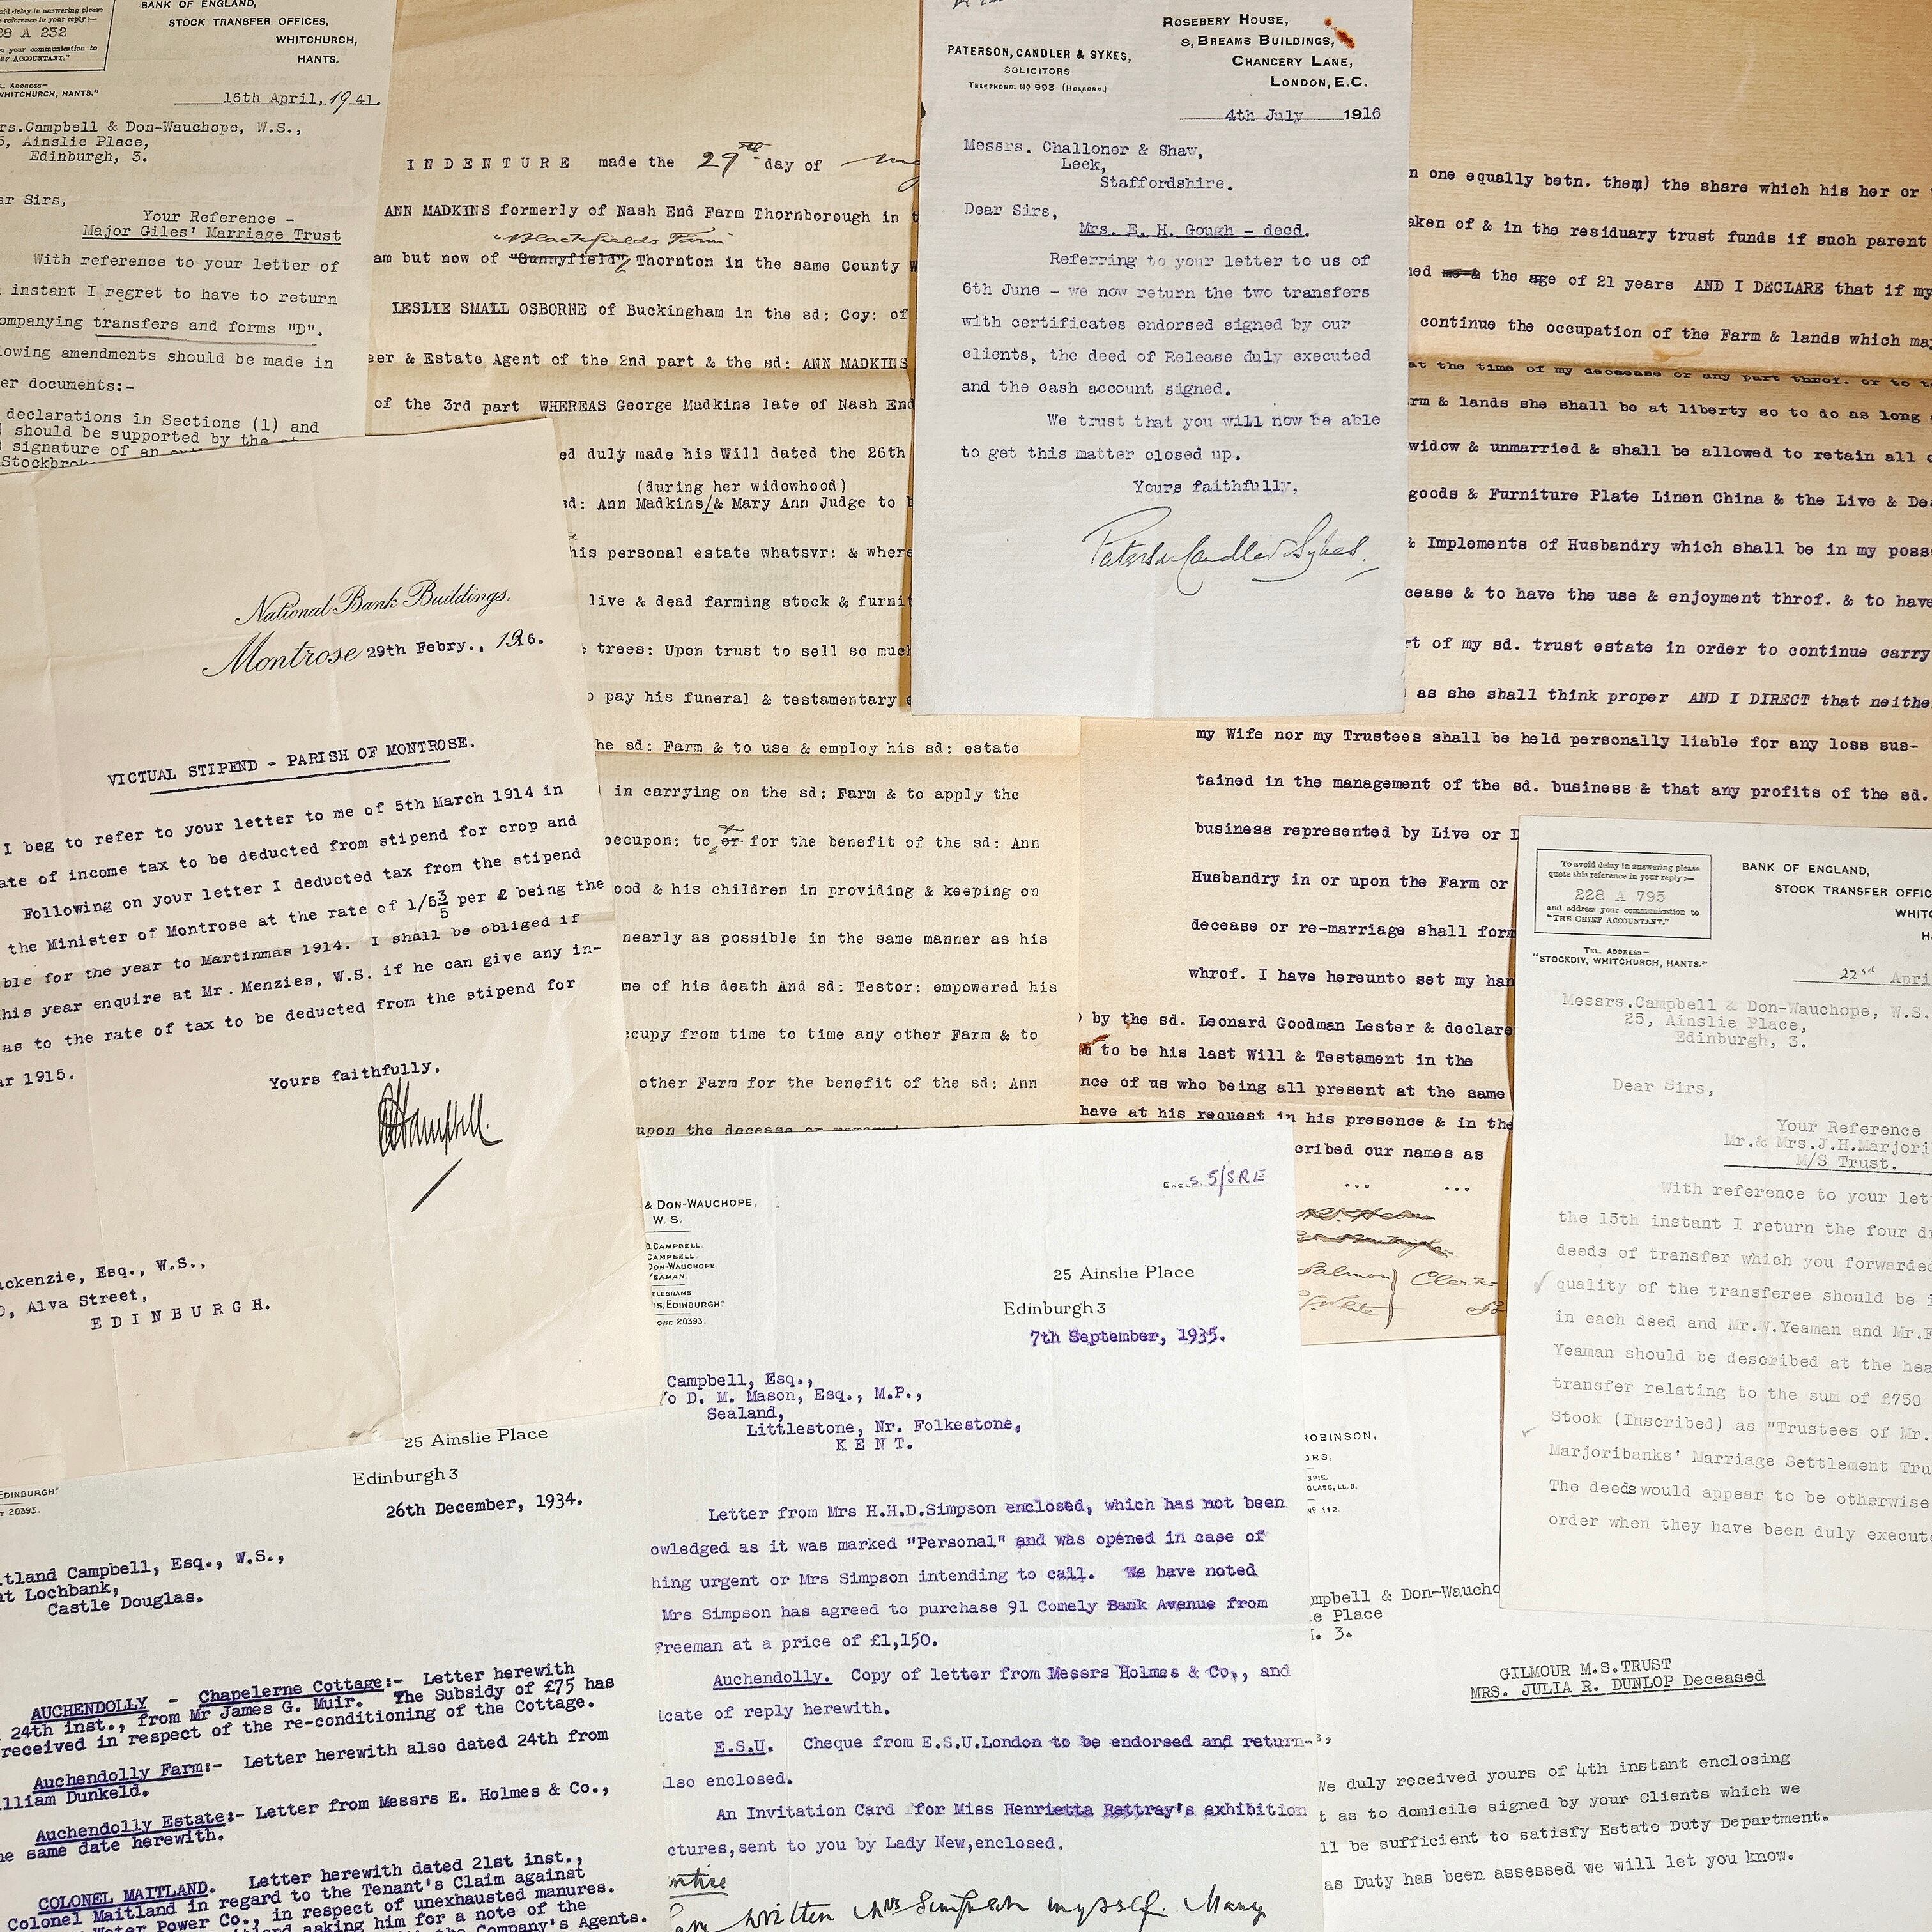 delay in answering please
is reference in your reply:—
28 A 232
ss your communication to
EF ACCOUNTANT."
L. ADDRESS—
WHITCHURCH, HANTS."
BANK OF ENGLAND,
STOCK TRANSFER OFFICES,
WHITCHURCH,
HANTS.
16th April, 1941.
rs.Campbell & Don-Wauchope, W.S.,
5, Ainslie Place,
Edinburgh, 3.
ar Sirs,
Your Reference -
Major Giles' Marriage Trust
With reference to your letter of
instant I regret to have to return
ompanying transfers and forms "D".
lowing amendments should be made in
er documents:-
declarations in Sections (1) and
) should be supported by the
signature of an
Stockbrok
INDENTURE made the 29th day of
ANN MADKINS formerly of Nash End Farm Thornborough in t
"Blackfields Farm"
am but now of "Sunnyfield" Thornton in the same County W
LESLIE SMALL OSBORNE of Buckingham in the sd: Coy: of
eer & Estate Agent of the 2nd part & the sd: ANN MADKINS
of the 3rd part WHEREAS George Madkins late of Nash End
ed duly made his Will dated the 26th
(during her widowhood)
sd: Ann Madkins/& Mary Ann Judge to b
his personal estate whatsvr: & where
live & dead farming stock & furnit
& trees: Upon trust to sell so much
o pay his funeral & testamentary e
he sd: Farm & to use & employ his sd: estate
in carrying on the sd: Farm & to apply the
occupon: to or for the benefit of the sd: Ann
ood & his children in providing & keeping on
nearly as possible in the same manner as his
me of his death And sd: Testor: empowered his
ccupy from time to time any other Farm & to
other Farm for the benefit of the sd: Ann
upon the decease or
PATERSON, CANDLER & SYKES,
SOLICITORS
TELEPHONE: Nº 993 (HOLBORN.)
ROSEBERY HOUSE,
8, BREAMS BUILDINGS,
CHANCERY LANE,
LONDON, E.C.
4th July 1916
Messrs. Challoner & Shaw,
Leek,
Staffordshire.
Dear Sirs,
Mrs. E. H. Gough - decd.
Referring to your letter to us of
6th June - we now return the two transfers
with certificates endorsed signed by our
clients, the deed of Release duly executed
and the cash account signed.
We trust that you will now be able
to get this matter closed up.
Yours faithfully,
Paterson Candler Sykes.
n one equally betn. them) the share which his her or
aken of & in the residuary trust funds if such parent
ned the age of 21 years AND I DECLARE that if my
continue the occupation of the Farm & lands which may
at the time of my decease or any part throf. or to t
rm & lands she shall be at liberty so to do as long
widow & unmarried & shall be allowed to retain all
goods & Furniture Plate Linen China & the Live & De
& Implements of Husbandry which shall be in my poss
cease & to have the use & enjoyment throf. & to have
rt of my sd. trust estate in order to continue carry
as she shall think proper AND I DIRECT that neithe
my Wife nor my Trustees shall be held personally liable for any loss sus-
tained in the management of the sd. business & that any profits of the sd.
business represented by Live or D
Husbandry in or upon the Farm or
decease or re-marriage shall form
whrof. I have hereunto set my han
) by the sd. Leonard Goodman Lester & declare
to be his last Will & Testament in the
nce of us who being all present at the same
have at his request in his presence & in the
cribed our names as
... ...
Salmon) Clerks
White
National Bank Buildings,
Montrose 29th Febry., 1916.
VICTUAL STIPEND - PARISH OF MONTROSE.
I beg to refer to your letter to me of 5th March 1914 in
ate of income tax to be deducted from stipend for crop and
Following on your letter I deducted tax from the stipend
the Minister of Montrose at the rate of 1/5 3/5 per £ being the
ble for the year to Martinmas 1914. I shall be obliged if
his year enquire at Mr. Menzies, W.S. if he can give any in-
as to the rate of tax to be deducted from the stipend for
ar 1915.
Yours faithfully,
Campbell.
ackenzie, Esq., W.S.,
0, Alva Street,
EDINBURGH.
To avoid delay in answering please
quote this reference in your reply:—
228 A 795
and address your communication to
"THE CHIEF ACCOUNTANT."
TEL. ADDRESS—
"STOCKDIV, WHITCHURCH, HANTS."
BANK OF ENGLAND,
STOCK TRANSFER OFFIC
WHITC
H
22nd Apri
Messrs.Campbell & Don-Wauchope, W.S.
25, Ainslie Place,
Edinburgh, 3.
Dear Sirs,
Your Reference
Mr.& Mrs.J.H.Marjori
M/S Trust.
With reference to your let
the 15th instant I return the four dr
deeds of transfer which you forwarded
quality of the transferee should be i
in each deed and Mr.W.Yeaman and Mr.F
Yeaman should be described at the hea
transfer relating to the sum of £750
Stock (Inscribed) as "Trustees of Mr.
Marjoribanks' Marriage Settlement Tru
The deeds would appear to be otherwise
order when they have been duly execute
& DON-WAUCHOPE,
W. S.
B.CAMPBELL.
CAMPBELL.
DON-WAUCHOPE.
YEAMAN.
ELEGRAMS
US, EDINBURGH."
ONE 20393.
ENCLS. 5/SRE
25 Ainslie Place
Edinburgh 3
7th September, 1935.
Campbell, Esq.,
/o D. M. Mason, Esq., M.P.,
Sealand,
Littlestone, Nr. Folkestone,
KENT.
Letter from Mrs H.H.D.Simpson enclosed, which has not been
owledged as it was marked "Personal" and was opened in case of
hing urgent or Mrs Simpson intending to call. We have noted
Mrs Simpson has agreed to purchase 91 Comely Bank Avenue from
Freeman at a price of £1,150.
Auchendolly. Copy of letter from Messrs Holmes & Co., and
icate of reply herewith.
E.S.U. Cheque from E.S.U.London to be endorsed and return-
lso enclosed.
An Invitation Card for Miss Henrietta Rattray's exhibition
ctures, sent to you by Lady New, enclosed.
written Mrs Simpson myself. Many
EDINBURGH."
E 20393.
25 Ainslie Place
Edinburgh 3
26th December, 1934.
itland Campbell, Esq., W.S.,
at Lochbank,
Castle Douglas.
AUCHENDOLLY - Chapelerne Cottage:- Letter herewith
24th inst., from Mr James G. Muir. The Subsidy of £75 has
received in respect of the re-conditioning of the Cottage.
Auchendolly Farm:- Letter herewith also dated 24th from
illiam Dunkeld.
Auchendolly Estate:- Letter from Messrs E. Holmes & Co.,
he same date herewith.
COLONEL MAITLAND. Letter herewith dated 21st inst.,
Colonel Maitland in regard to the Tenant's Claim against
Water Power Co., in respect of unexhausted manures.
asking him for a note of the
the Company's Agents.
ROBINSON,
ORS.
SPIE.
GLASS, LL.B.
Nº 112.
mpbell & Don-Waucho
e Place
. 3.
GILMOUR M.S.TRUST
MRS. JULIA R. DUNLOP Deceased
s,
We duly received yours of 4th instant enclosing
t as to domicile signed by your Clients which we
ll be sufficient to satisfy Estate Duty Department.
as Duty has been assessed we will let you know.